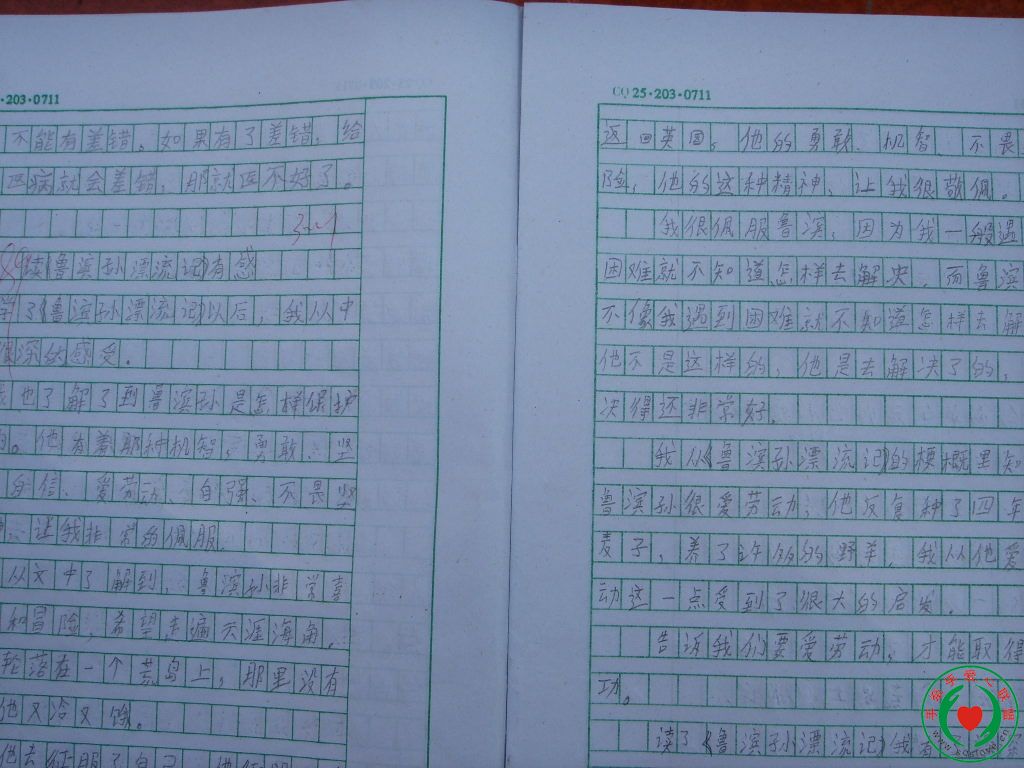 ·203·0711
不能有差错。如果有了差错,给
医病就会差错,那就医不好了。
3.1
89
读《鲁滨孙漂流记》有感
了《鲁滨孙漂流记》以后,我从中
深的感受。
我也了解了到鲁滨孙是怎样保护
的。他有着那种机智、勇敢、坚
自信、爱劳动、自强、不畏坚
让我非常的佩服。
从文中了解到,鲁滨孙非常喜
和冒险,希望走遍天涯海角。
轮落在一个荒岛上,那里没有
他又冷又饿。
他去征服了自己,他征服
CQ 25·203·0711
返回英国。他的勇敢、机智、不畏
险,他的这种精神,让我很敬佩。
我很佩服鲁滨,因为我一般遇
困难就不知道怎样去解决,而鲁滨
不像我遇到困难就不知道怎样去解
他不是这样的,他是去解决了的,
决得还非常好。
我从《鲁滨孙漂流记》的梗概里知
鲁滨孙很爱劳动,他反复种了四年
麦子,养了许多的野羊,我从他爱
动这一点受到了很大的启发。
告诉我们要爱劳动,才能取得
功。
读了《鲁滨孙漂流记》我有